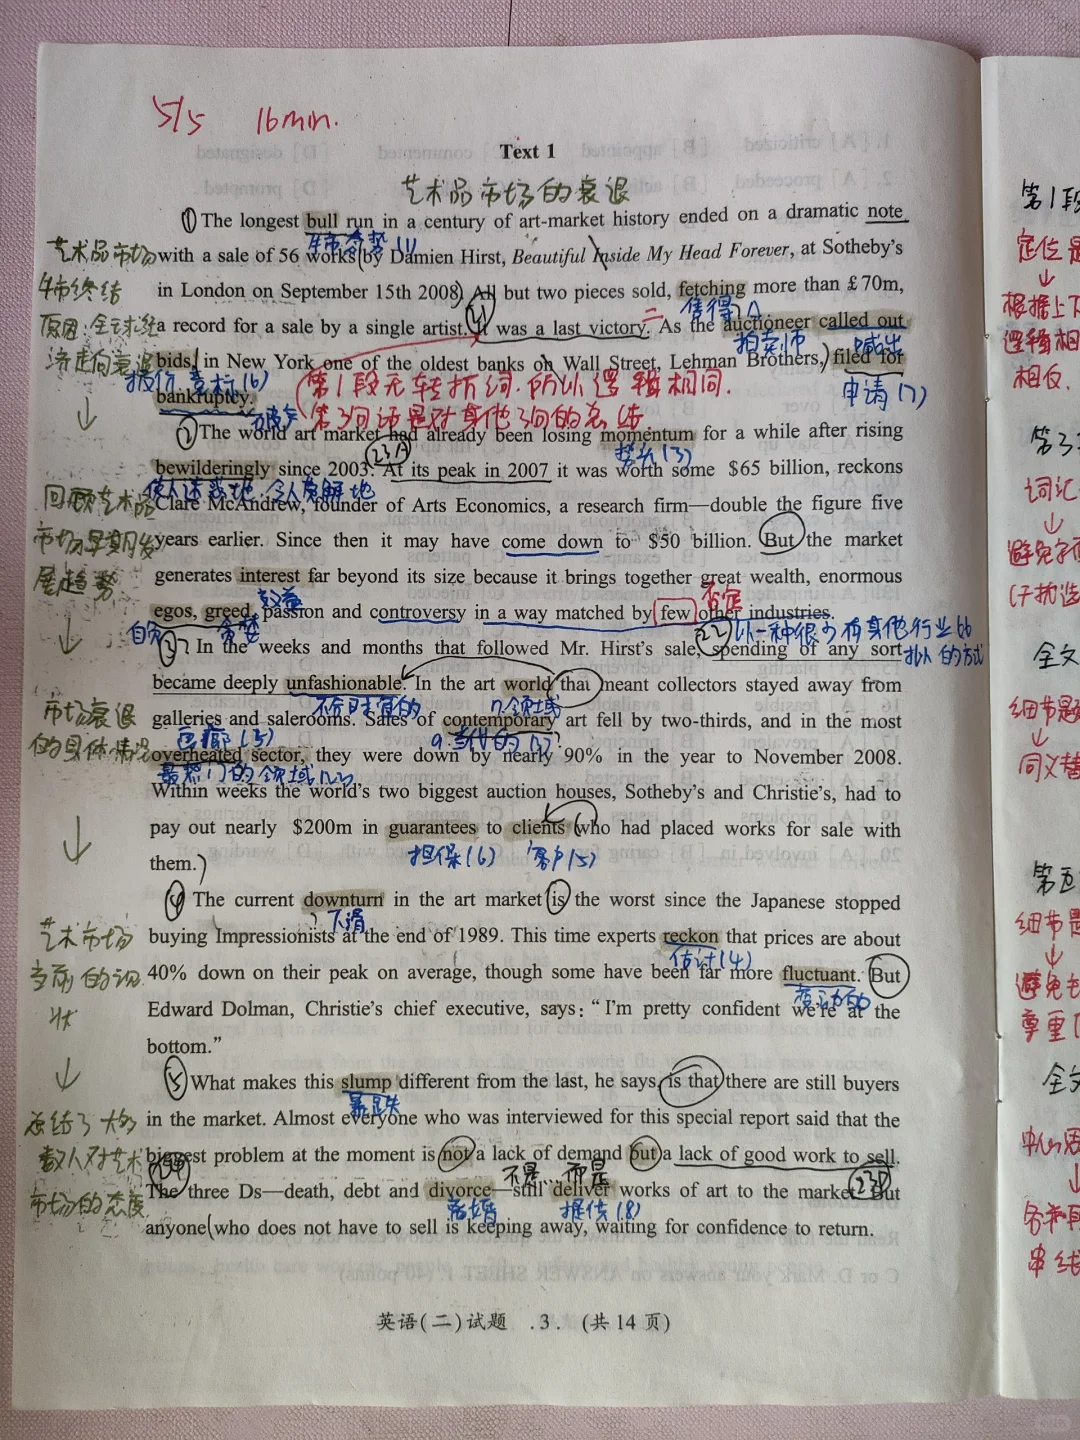 5/5 16min.
Text 1
艺术品市场的衰退
①The longest bull run in a century of art-market history ended on a dramatic note
牛市态势(1)
with a sale of 56 works by Damien Hirst, Beautiful Inside My Head Forever, at Sotheby's
in London on September 15th 2008. All but two pieces sold, fetching more than £70m,
售得
a record for a sale by a single artist. It was a last victory. As the auctioneer called out
拍卖师 喊出
bids, in New York one of the oldest banks on Wall Street, Lehman Brothers, filed for
报价 竞标(6) 第1段无转折词.所以逻辑相同. 申请(7)
bankruptcy.
破产 第3句话是对其他3句的总结
②The world art market had already been losing momentum for a while after rising
23A 势头(3)
bewilderingly since 2003. At its peak in 2007 it was worth some $65 billion, reckons
使人迷惑地.令人费解地
Clare McAndrew, founder of Arts Economics, a research firm—double the figure five
years earlier. Since then it may have come down to $50 billion. But the market
generates interest far beyond its size because it brings together great wealth, enormous
效益 否定
egos, greed, passion and controversy in a way matched by few other industries.
自负 贪婪 22 以一种很少有其他行业能
③ In the weeks and months that followed Mr. Hirst's sale, spending of any sort
的方式
became deeply unfashionable. In the art world that meant collectors stayed away from
不合时宜的 n.领域
galleries and salerooms. Sales of contemporary art fell by two-thirds, and in the most
画廊(3) a.当代的
overheated sector, they were down by nearly 90% in the year to November 2008.
最热门的领域
Within weeks the world's two biggest auction houses, Sotheby's and Christie's, had to
pay out nearly $200m in guarantees to clients who had placed works for sale with
担保(6) 客户(5)
them.
④ The current downturn in the art market is the worst since the Japanese stopped
下滑
buying Impressionists at the end of 1989. This time experts reckon that prices are about
估计(4)
40% down on their peak on average, though some have been far more fluctuant. But
变动的
Edward Dolman, Christie's chief executive, says: “I'm pretty confident we're at the
bottom.”
⑤What makes this slump different from the last, he says, is that there are still buyers
暴跌
in the market. Almost everyone who was interviewed for this special report said that the
biggest problem at the moment is not a lack of demand but a lack of good work to sell.
不是…而是
The three Ds—death, debt and divorce—still deliver works of art to the market. But
离婚 提供(8)
anyone who does not have to sell is keeping away, waiting for confidence to return.
英语(二)试题 .3. (共14页)
艺术品市场
牛市终结
原因:全球经
济走向衰退
回顾艺术品
市场早期发
展趋势
市场衰退
的具体情况
艺术市场
当前的现
状
总结了大多
数人对艺术
市场的态度
第1段
定位是
根据上下
逻辑相
相反.
第3
词汇
避免
全文
细节题
同义替
第五
细节是
避免
尊重
全文
中心思
各
串线